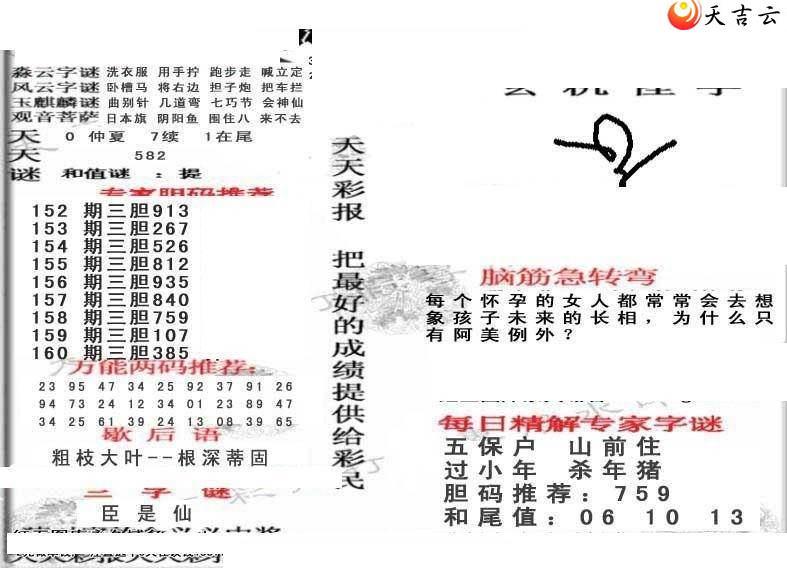 天吉云
淼云字谜 洗衣服 用手拧 跑步走 喊立定
风云字谜 卧槽马 将右边 担子炮 把车拦
玉麒麟谜 曲别针 几道弯 七巧节 会神仙
观音菩萨 日本旗 阴阳鱼 围住八 来不去
天 0 仲夏 7续 1在尾
天 582
谜 和值谜 ：提
专家胆码推荐
152 期三胆913
153 期三胆267
154 期三胆526
155 期三胆812
156 期三胆935
157 期三胆840
158 期三胆759
159 期三胆107
160 期三胆385
万能两码推荐:
23 95 47 34 25 92 37 91 26
94 73 24 12 34 01 23 89 47
34 25 61 39 24 13 08 39 65
歇后语
粗枝大叶--根深蒂固
三字谜
臣是仙
天天彩报 把最好的成绩提供给彩民
脑筋急转弯
每个怀孕的女人都常常会去想
象孩子未来的长相，为什么只
有阿美例外？
每日精解专家字谜
五保户 山前住
过小年 杀年猪
胆码推荐：759
和尾值：06 10 13